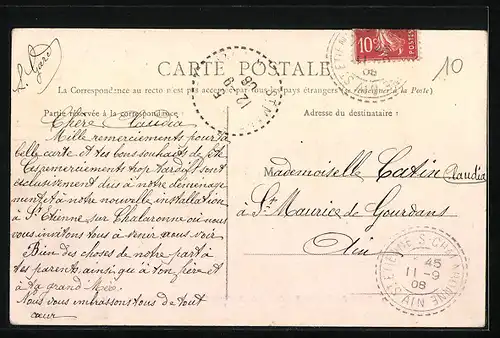 CARTE POSTALE
La Correspondance au recto n'est pas acceptée par tous les pays étrangers (Se renseigner à la Poste)
Partie réservée à la correspondance
Adresse du destinataire :
10
Chère Claudia
Mille remerciements pour ta
belle carte et tes bons souhaits de fête
Ces remerciements trop tardifs sont
exclusivement dûs à notre déménage
ment et à notre nouvelle installation
à St Etienne sur Chalaronne où nous
vous invitons tous à venir nous voir
Bien des choses de notre part à
tes parents, ainsi qu'à ton frère et
à ta grand-Mère.
Nous vous embrassons tous de tout
cœur
Mademoiselle Catin Claudia
à St Maurice de Gourdans
Ain
10
POSTES
12 - 9
08
ST ETIENNE S. CHALARONNE
45
11 - 9
08
AIN